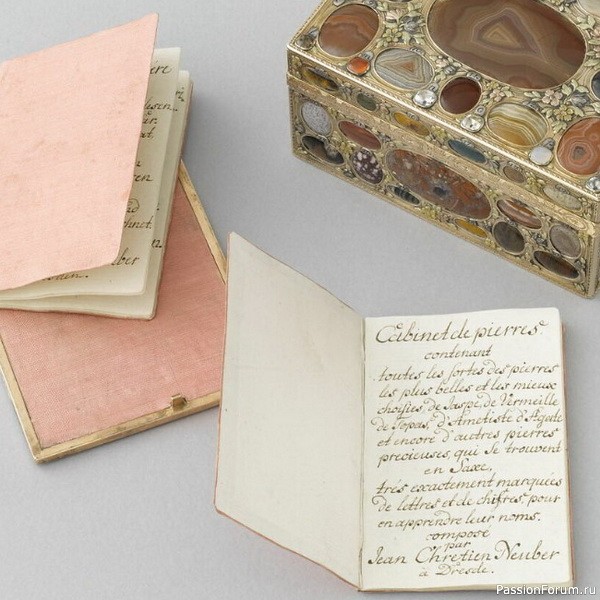 ere
isen
ür
at.
en
ad
chnet.
ber
Cabinet de pierres.
contenant
toutes les sortes des pierres
les plus belles et les mieux
choisies, de Jaspe, de Vermeille
de Topas, d'Ametiste d'Agate
et encore d'autres pierres
precieuses, qui se trouvent
en Saxe,
trés exactement marquées
de lettres et de chifres, pour
en apprendre leur noms.
composé
par
Jean Chretien Neuber
à Dresde.
PassionForum.ru